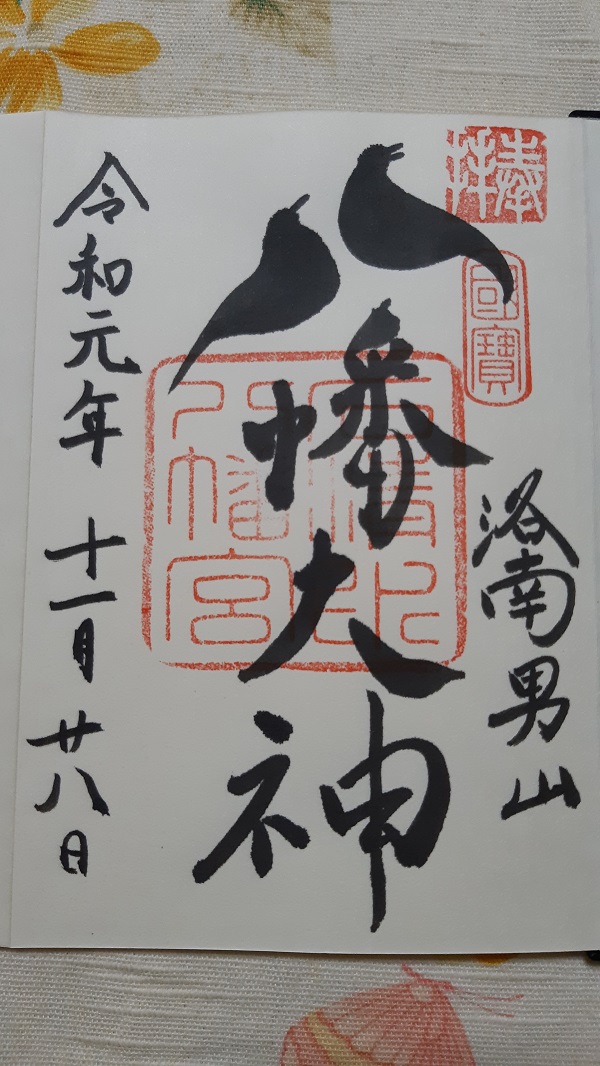 奉拝
國寶
洛南男山
八幡大神
八幡宮
令和元年 十一月 廿八日